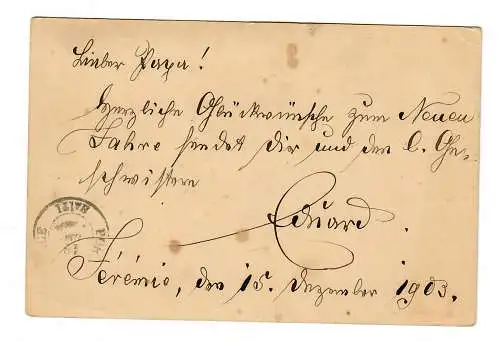 Lieber Papa!
Herzliche Glückwünsche zum Neuen
Jahre sendet Dir und den l. Ge-
schwistern
Eduard.
Jérémie, den 15. Dezember 1903.
HAITI